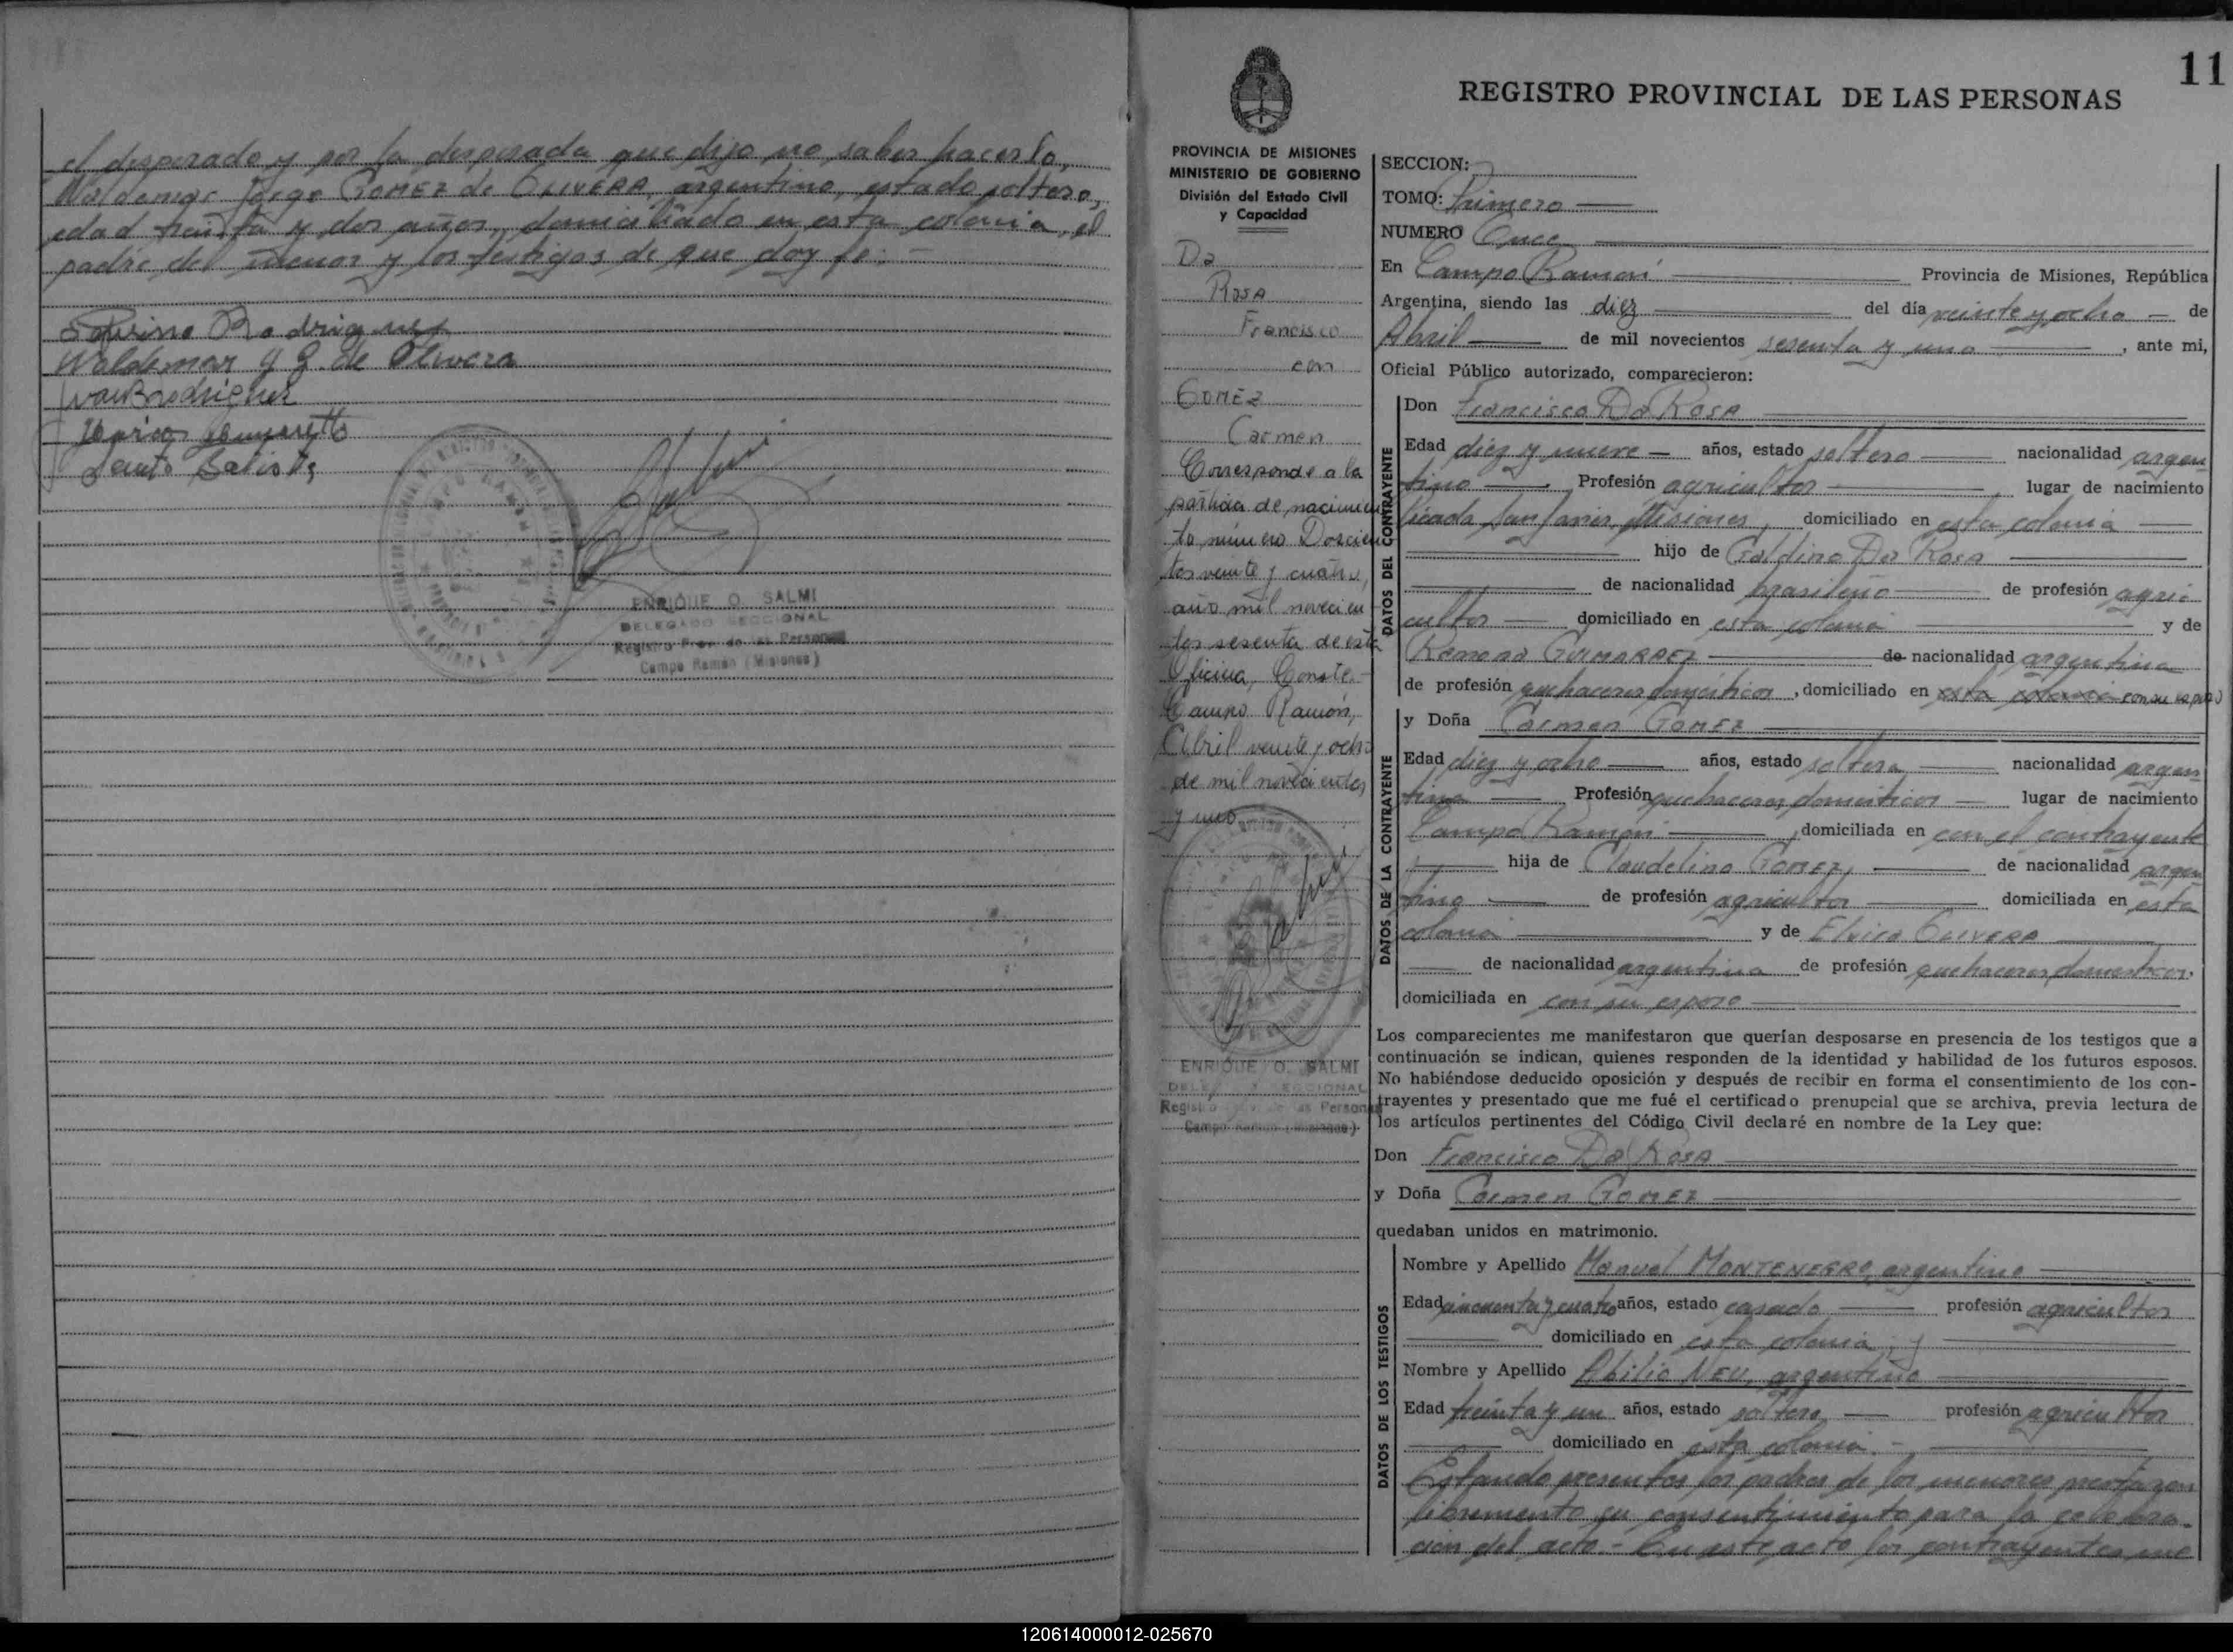 el desposado y por la desposada que dijo no saber hacerlo,
Waldemar Jorge GOMEZ de OLIVERA, argentino, estado soltero,
edad treinta y dos años, domiciliado en esta colonia, el
padre del menor y los testigos de que doy fe: -
Rodriguez
Waldemar J G. de Olivera
ENRIQUE O. SALMI
DELEGADO SECCIONAL
Registro Prov. de las Personas
Campo Ramón (Misiones)
11
REGISTRO PROVINCIAL DE LAS PERSONAS
PROVINCIA DE MISIONES
MINISTERIO DE GOBIERNO
División del Estado Civil
y Capacidad
Da
Rosa
Francisco
con
GOMEZ
Carmen
Corresponde a la
partida de nacimien
to número Doscien
tos veinte y cuatro,
año mil novecien
tos sesenta de esta
Oficina, Conste.-
Campo Ramón,
Abril veinte y ocho
de mil novecientos
y uno
ENRIQUE O. SALMI
DELEGADO SECCIONAL
Registro Prov. de las Personas
Campo Ramón (Misiones)
SECCION:
TOMO: Primero
NUMERO Once
En Campo Ramón Provincia de Misiones, República
Argentina, siendo las diez del día veinte y ocho de
Abril de mil novecientos sesenta y uno, ante mi,
Oficial Público autorizado, comparecieron:
DATOS DEL CONTRAYENTE
Don Francisco Da Rosa
Edad diez y nueve años, estado soltero nacionalidad argen
tino Profesión agricultor lugar de nacimiento
Picada San Javier, Misiones, domiciliado en esta colonia
hijo de Galdino Da Rosa
de nacionalidad brasileño de profesión agri
cultor domiciliado en esta colonia y de
Ramona GUIMARAEZ de nacionalidad argentina
de profesión quehaceres domésticos, domiciliado en esta colonia con su esposo
DATOS DE LA CONTRAYENTE
y Doña Carmen GOMEZ
Edad diez y ocho años, estado soltera nacionalidad argen
tina Profesión quehaceres domésticos lugar de nacimiento
Campo Ramón, domiciliada en con el contrayente
hija de Claudelino GOMEZ, de nacionalidad argen
tino de profesión agricultor domiciliada en esta
colonia y de Elvira OLIVERA
de nacionalidad argentina de profesión quehaceres domésticos.
domiciliada en con su esposo
Los comparecientes me manifestaron que querían desposarse en presencia de los testigos que a
continuación se indican, quienes responden de la identidad y habilidad de los futuros esposos.
No habiéndose deducido oposición y después de recibir en forma el consentimiento de los con-
trayentes y presentado que me fué el certificado prenupcial que se archiva, previa lectura de
los artículos pertinentes del Código Civil declaré en nombre de la Ley que:
Don Francisco Da Rosa
y Doña Carmen GOMEZ
quedaban unidos en matrimonio.
DATOS DE LOS TESTIGOS
Nombre y Apellido Manuel MONTENEGRO, argentino
Edad cincuenta y cuatro años, estado casado profesión agricultor
domiciliado en esta colonia; y
Nombre y Apellido Abilio NEU, argentino
Edad treinta y un años, estado soltero profesión agricultor
domiciliado en esta colonia.-
Estando presentes los padres de los menores prestaron
libremente su consentimiento para la celebra-
ción del acto.- En este acto los contrayentes me
120614000012-025670